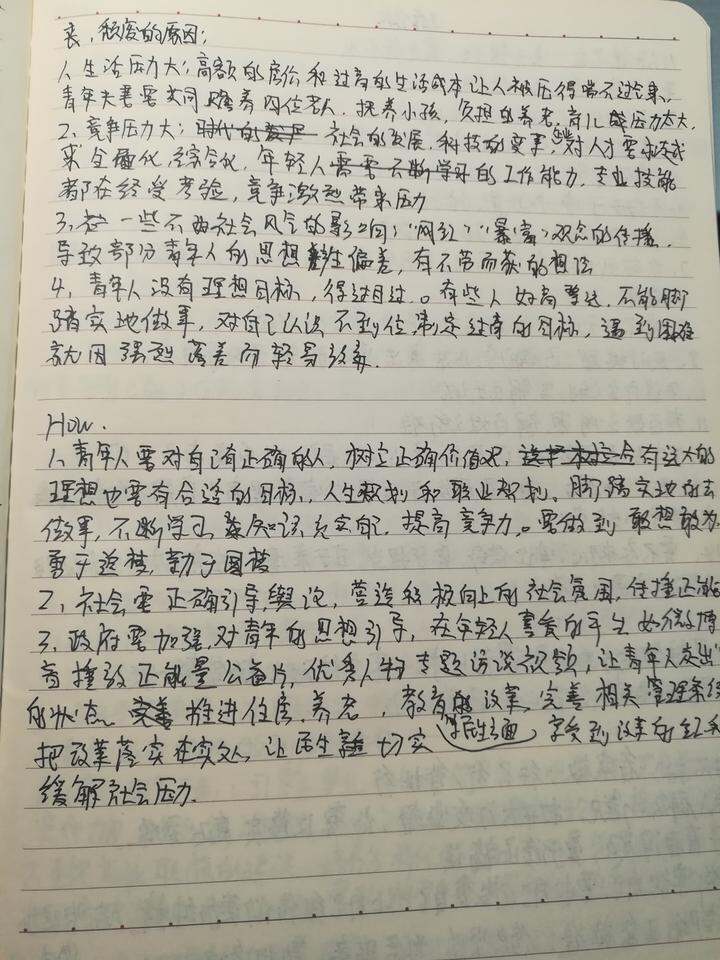 丧,颓废的原因;
1、生活压力大;高额的房价和过高的生活成本让人被压得喘不过气来,
青年夫妻需共同赡养四位老人,抚养小孩,负担的养老,育儿压力太大,
2、竞争压力大;社会的发展,科技的变革,对人才要求越
来全面化,综合化,年轻人的工作能力,专业技能
都在经受考验,竞争激烈带来压力
3、一些不良社会风气的影响;“网红”“暴富”观念的传播,
导致部分青年人的思想产生偏差,有不劳而获的想法
4、青年人没有理想目标,得过且过。有些人好高骛远,不能脚
踏实地做事,对自己认识不到位,制定过高的目标,遇到困难
就因强烈落差而轻易放弃.
How.
1、青年人要对自己有正确的认,树立正确价值观,有远大的
理想也要有合适的目标,人生规划和职业规划。脚踏实地的去
做事,不断学习新知识充实自己,提高竞争力。要做到敢想敢为
勇于追梦,勤于圆梦
2、社会要正确引导舆论,营造积极向上的社会氛围,传播正能
3、政府要加强对青年的思想引导,在年轻人喜爱的平台如微博
播放正能量公益片,优秀人物专题访谈视频,让青年人走出
的状态。推进住房,养老,教育的改革,完善相关管理系统
把改革落实在实处,让民生切实享受到改革的红利
缓解社会压力.